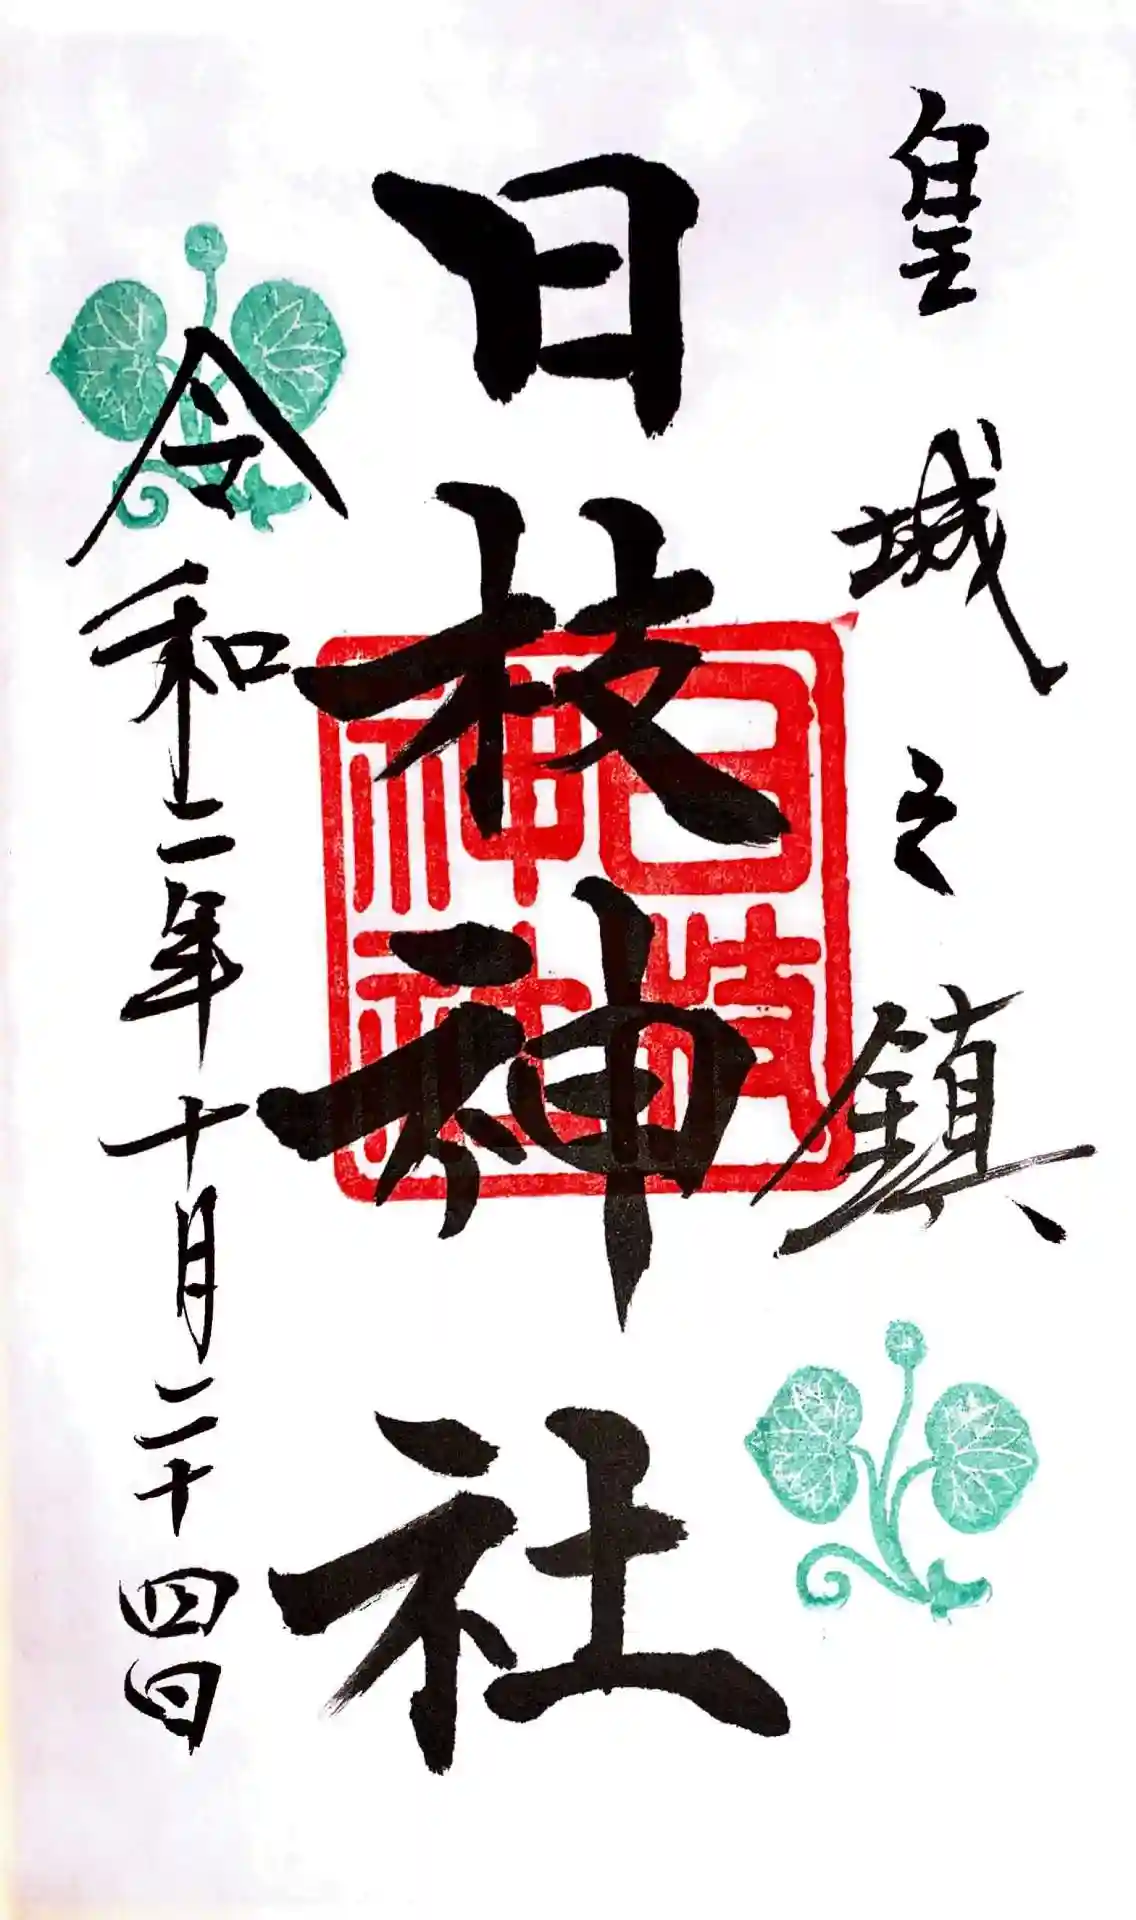 皇城之鎮
日枝神社
日枝
神社
令和二年十月二十四日